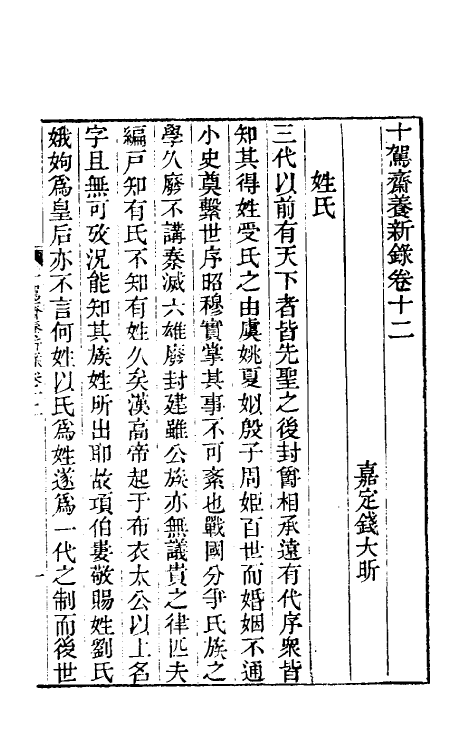 十駕齋養新錄卷十二
嘉定錢大昕
姓氏
三代以前有天下者皆先聖之後封爵相承遠有代序衆皆
知其得姓受氏之由虞姚夏姒殷子周姬百世而婚姻不通
小史奠繫世序昭穆實掌其事不可紊也戰國分爭氏族之
學久廢不講秦滅六雄廢封建雖公族亦無議貴之律匹夫
編戸知有氏不知有姓久矣漢高帝起于布衣太公以上名
字且無可攷況能知其族姓所出耶故項伯婁敬賜姓劉氏
娥姁爲皇后亦不言何姓以氏爲姓遂爲一代之制而後世
十駕齋養新錄卷十二
一